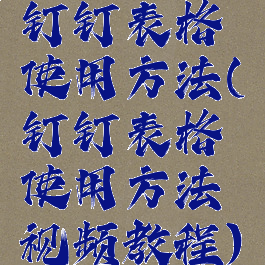 钉钉表格
使用方法(
钉钉表格
使用方法
视频教程)